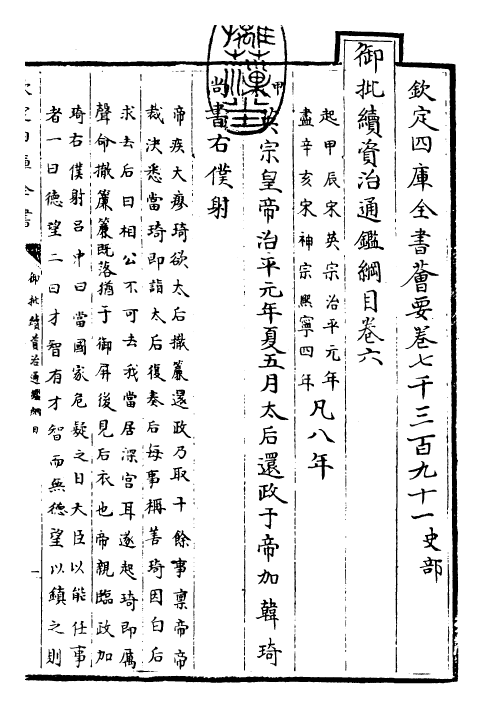 欽定四庫全書薈要卷七千三百九十一史部
御批續資治通鑑綱目卷六
起甲辰宋英宗治平元年
盡辛亥宋神宗熙寧四年
凡八年
甲
英宗皇帝治平元年夏五月太后還政于帝加韓琦
尚書右僕射
帝疾大瘳琦欲太后撤簾還政乃取十餘事稟帝帝
裁決悉當琦即詣太后復奏后每事稱善琦因白后
求去后曰相公不可去我當居深宮耳遂起琦即厲
聲命撤簾簾既落猶于御屏後見后衣也帝親臨政加
琦右僕射呂中曰當國家危疑之日大臣以能任事
者一曰德望二曰才智有才智而無德望以鎮之則
欽定四庫全書
御批續資治通鑑綱目
一